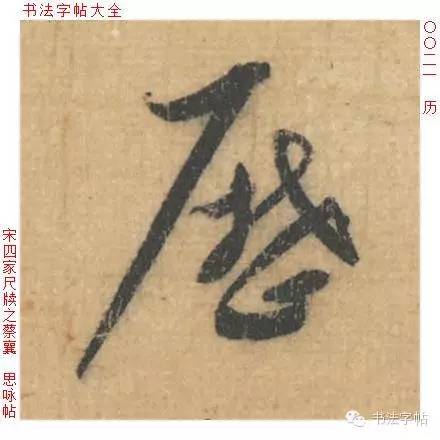 书法字帖大全
〇〇二一 历
歷
宋四家尺牍之蔡襄 思咏帖
书法字帖